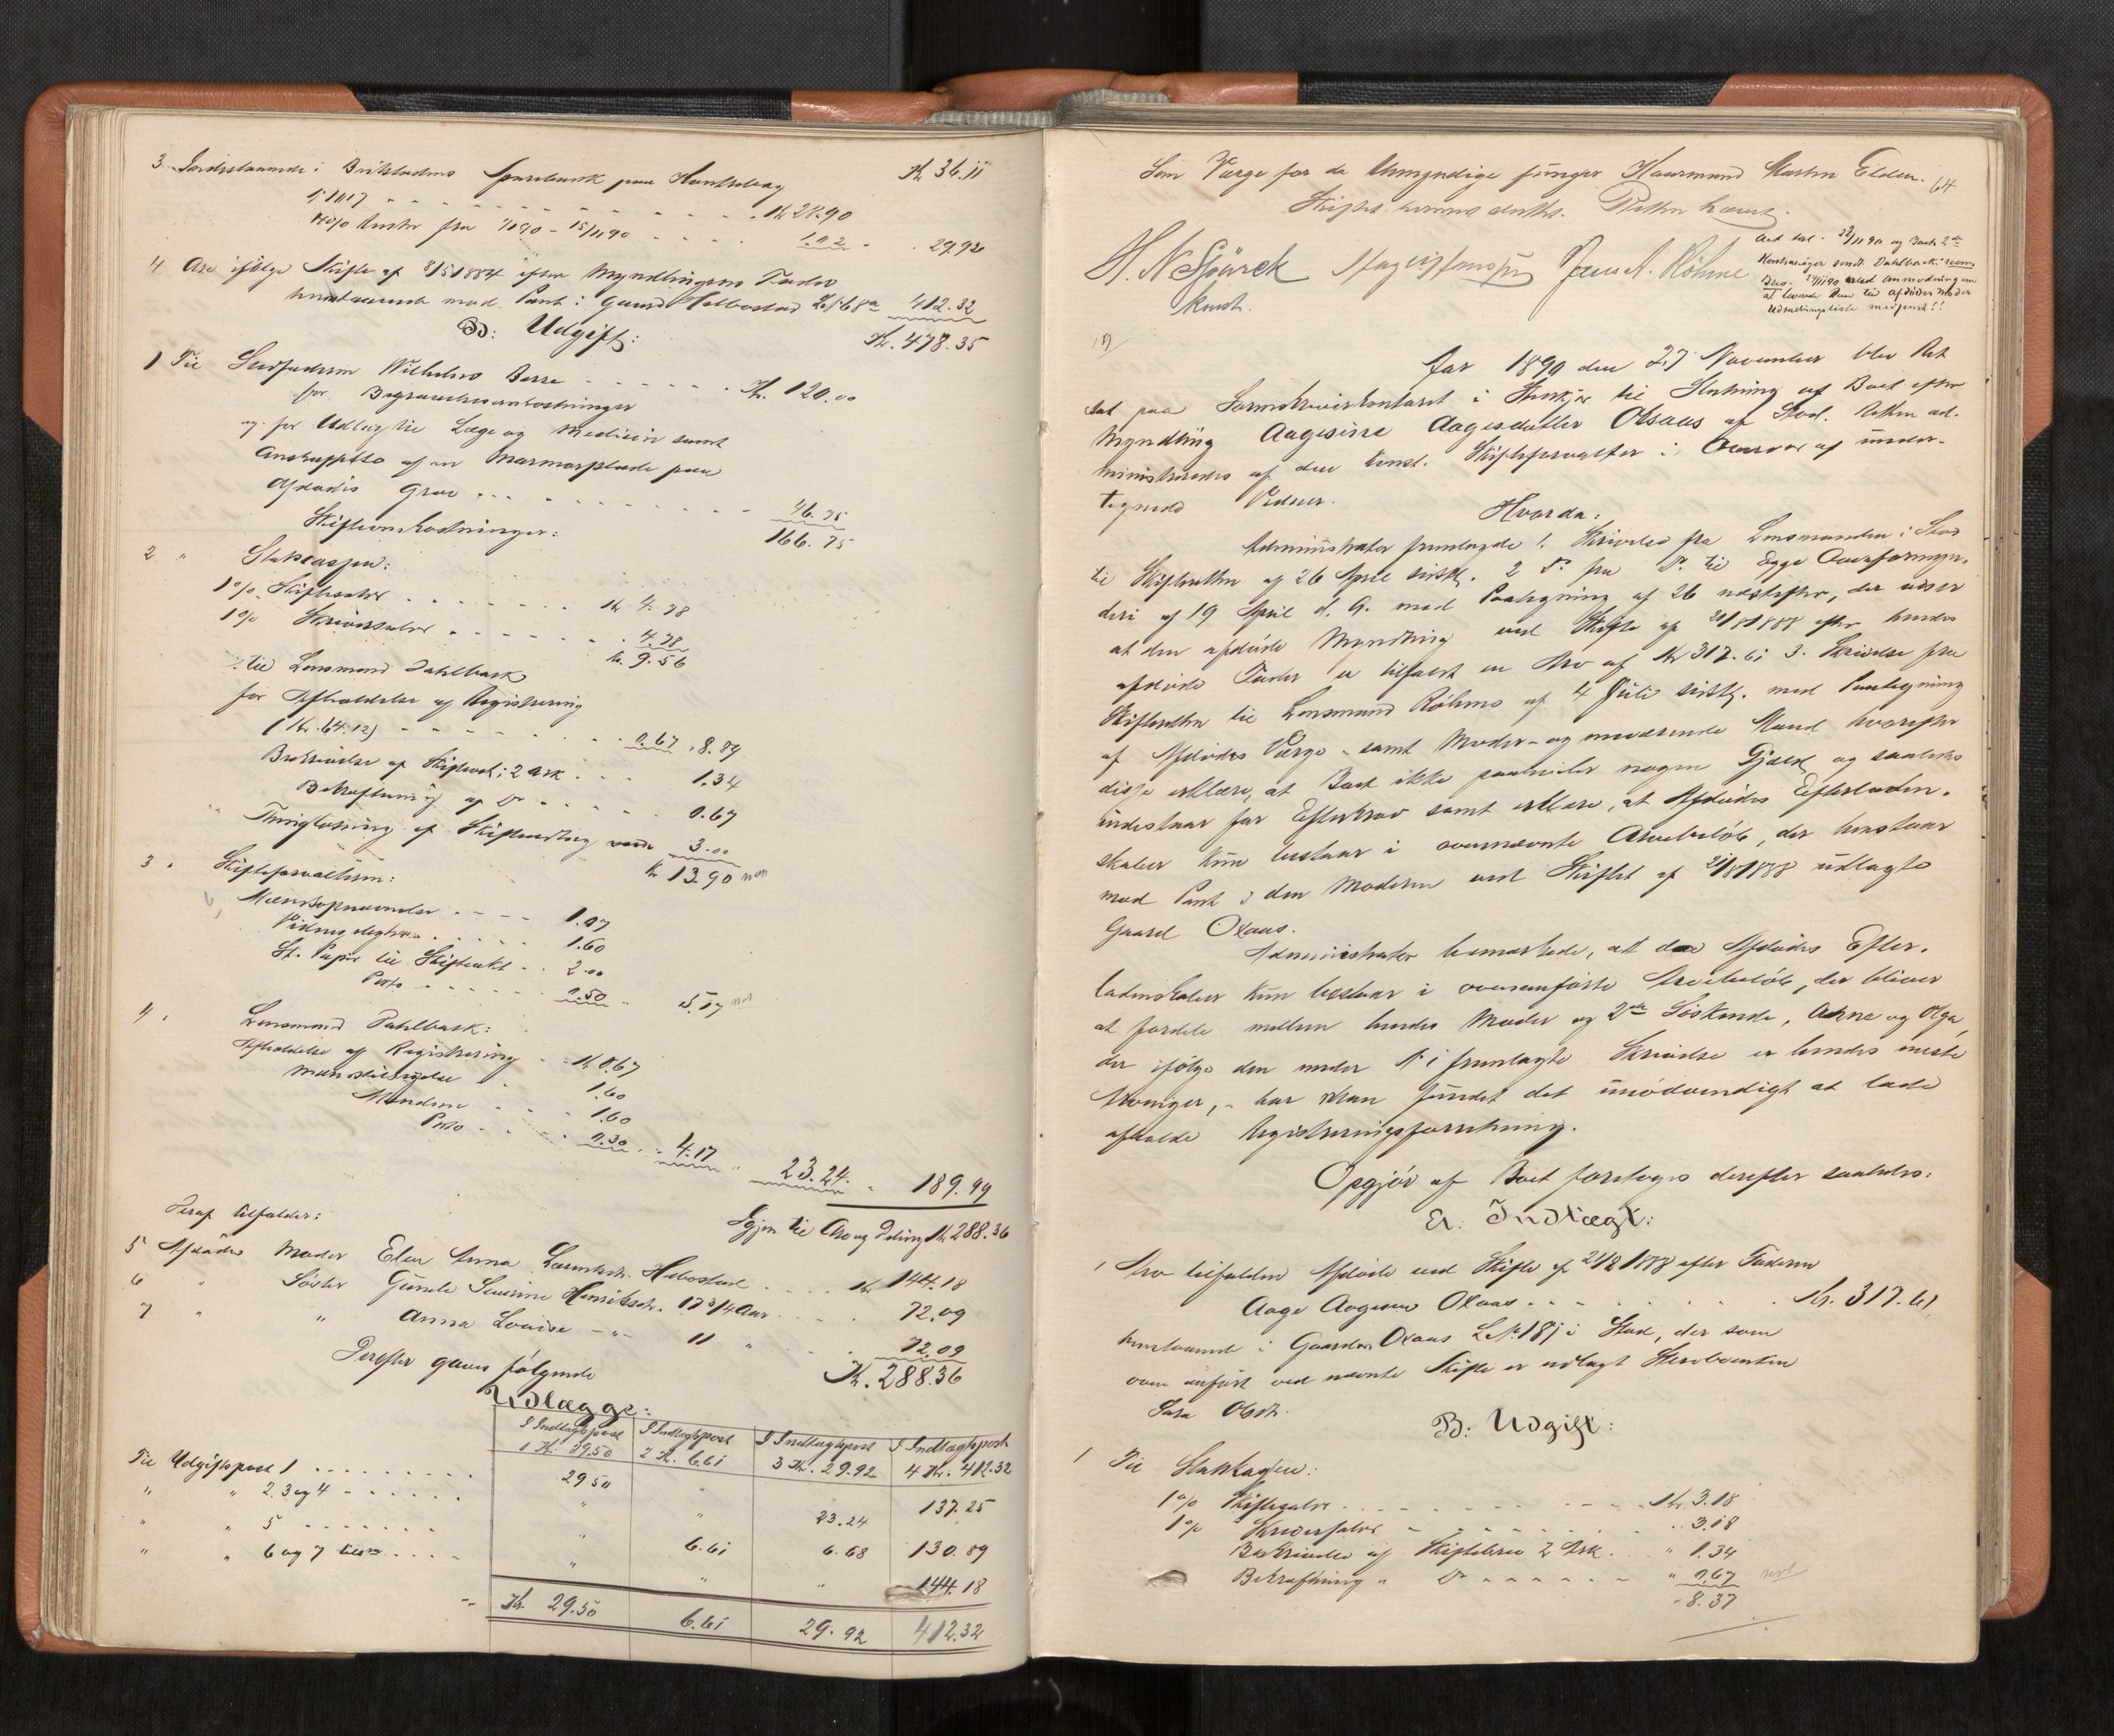 3 Indestaaende i Beitstadens Sparebank paa Kontrabog Kr 36.11
№ 1017 - - - - Kr 28.90
Renter fra - 15/11 90 - - - 1.02 - . 29.92
4 Arv ifølge Skifte af 8/5 1884 efter Myndlingens Fader
henstaaende mod Pant i Gaard Helbostad L.№ 68a 412.32
Kr. 478.35
B: Udgift:
1 Til Stedfaderen - - - Kr. 120.00
for Begravelsesomkostninger
og for Udlæg til Læge og Medicin samt
Anskaffelse af en Marmorplade paa
Afdødes Grav . . . - - - 46.75
166.75
Skifteomkostninger:
2 " Statskassen:
1% Skiftesalær . - - - Kr 4.78
1% Skriversalær . - - - 4.78
Kr. 9.56
til Lensmand Dahlback
for Afholdelse af Registrering
(Kr. 64.12) - - - 0.67 . 8.89
Beskrivelse af Skiftet; 2 Ark . . . 1.34
Bekræftning af Do - - - 0.67
Thinglæsning af Skifteudlæg 3.00
Kr 13.90
3 . Skifteforvalteren:
Mændsopnævnelse . - - - 1.07
. . . 1.60
St. Papir til Skifteakt . . 2.00
Porto . - - - 0.50 " 5.17
4 . Lensmand Dahlback:
Afholdelse af Registrering - - Kr 0.67
Mændstilsigelse 1.60
Mændene - - - 1.60
Porto - . - . 0.30 . . 4.17 " 23.24. - 189.99
Igjen til Arv og Deling Kr 288.36
Deraf tilfalder:
5 Afdødes Moder Elen Anna Helbostad . . . . Kr 144.18
6 " Søster Gunele Severine Henriksdr. 17 3/4 Aar . . . 72.09
7 " " Anna Louise - " - 11 " . . 72.09
Kr. 288.36
Derefter gaves følgende
Udlægge:
I Indtægtspost 1 Kr. 29.50 I Indtægtspost 2 Kr. 6.61 I Indtægtspost 3 Kr. 29.92 I Indtægtspost 4 Kr. 412.32
Til Udgiftspost 1 . . . . 29.50 " " 137.25
" " 2. 3 og 4 - - - " " 23.24
" " 5 - - - " 6.61 6.68 130.89
" " 6 og 7 . . . " " " 144.18
Kr. 29.50 6.61 29.92 412.32
Som Værge for de Umyndige fungerer Haarmand Martin Elden. 64
Skiftet hermed sluttet. Retten hævet.
H. N. Sjørek Jens A. Röhme
Konst.
Kontrabøger sendt Dahlback
med Anmodning om
at levere dem til Afdødes Moder
Aar 1890 den 27 November blev Ret
sat paa Sorenskriverkontoret i Stenkjær til Slutning af Boet efter
Myndling Aagesine Aagesdatter Olsaas af Stod. Retten ad-
ministreredes af den konst. Skifteforvalter i Overvær af under-
tegnede Vidner.
Hvorda:
Administrator fremlagde 1. Skrivelse fra Lensmanden i Stod
til Skifteretten af 26 April sidstl. 2 Do fra Do til Egge Overformyn-
deri af 19 April d. A. med Paategning af 26 næstefter, der viser
at den afdøde Myndling ved Skifte af 21/8 1888 efter hendes
afdøde Fader er tilfaldt en Arv af Kr 317.61 3. Skrivelse fra
Skifteretten til Lensmand Röhme af 4 Juli sidstl. med Paategning
af Afdødes Værge - samt Moder - og nuværende Mand hvorefter
disse erklære, at Boet ikke paahviler nogen Gjæld og saaledes
indestaar for Efterkrav samt erklære, at Afdødes Efterladen-
skaber kun bestaar i ovennævnte Arvebeløb, der henstaar
mod Pant i den Moderen ved Skiftet af 21/8 1888 udlagte
Gaard Olsaas.
Administrator bemærkede, at da Afdødes Efter-
ladenskaber kun bestaar i ovenanførte Arvebeløb, der bliver
at fordele mellem hendes Moder og 2de Søskende, Anne og Olga,
der ifølge den under № 1 fremlagte Skrivelse er hendes eneste
Arvinger, - har man fundet det unødvendigt at lade
afholde Registreringsforretning.
Opgjør af Boet foretoges derefter saaledes:
A: Indtægt:
1 Arv tilfalden Afdøde ved Skifte af 21/8 1888 efter Faderen
Aage Aagesen Olsaas . . - - - . Kr. 317.61
henstaaende i Gaarden Olsaas L.№ 181 i Stod, der som
oven anført ved nævnte Skifte er udlagt Stervboenken
Sara Olsdtr.
B. Udgift:
1 Til Statskassen:
1% Skiftesalær . - - - Kr. 3.18
1% Skriversalær - - - . . 3.18
Beskrivelse af Skiftebrev 2 Ark . . " 1.34
Bekræftning " Do - - - " 0.67
" 8.37